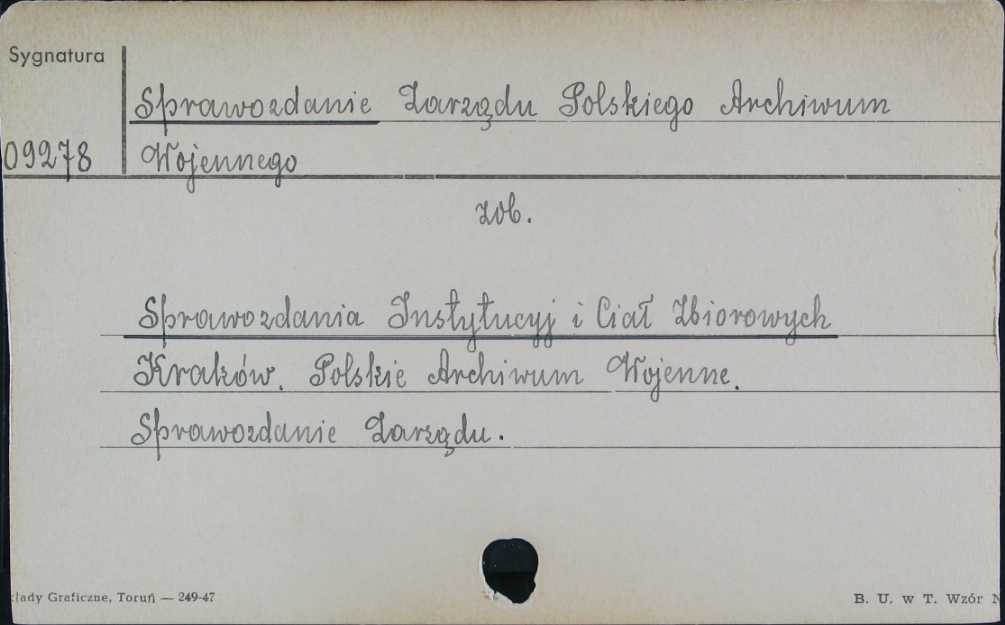 Sygnatura
Sprawozdanie Zarządu Polskiego Archiwum
09278 Wojennego
zob.
Sprawozdania Instytucyj i Ciał Zbiorowych
Kraków. Polskie Archiwum Wojenne.
Sprawozdanie Zarządu.
Graficzne, Toruń — 249-47
B. U. w T. Wzór